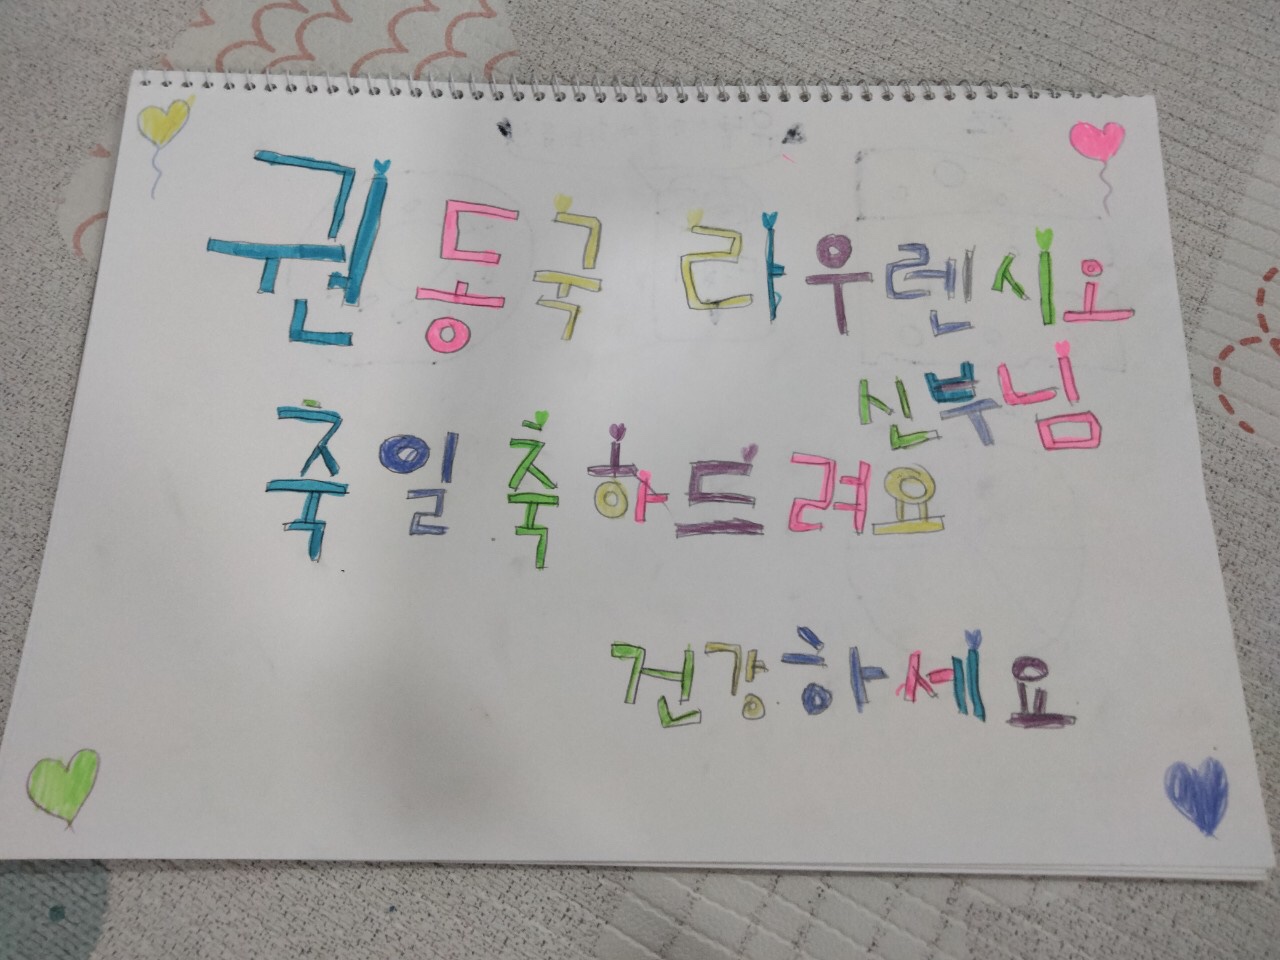 권동국 라우렌시오
신부님
축일 축하드려요
건강하세요